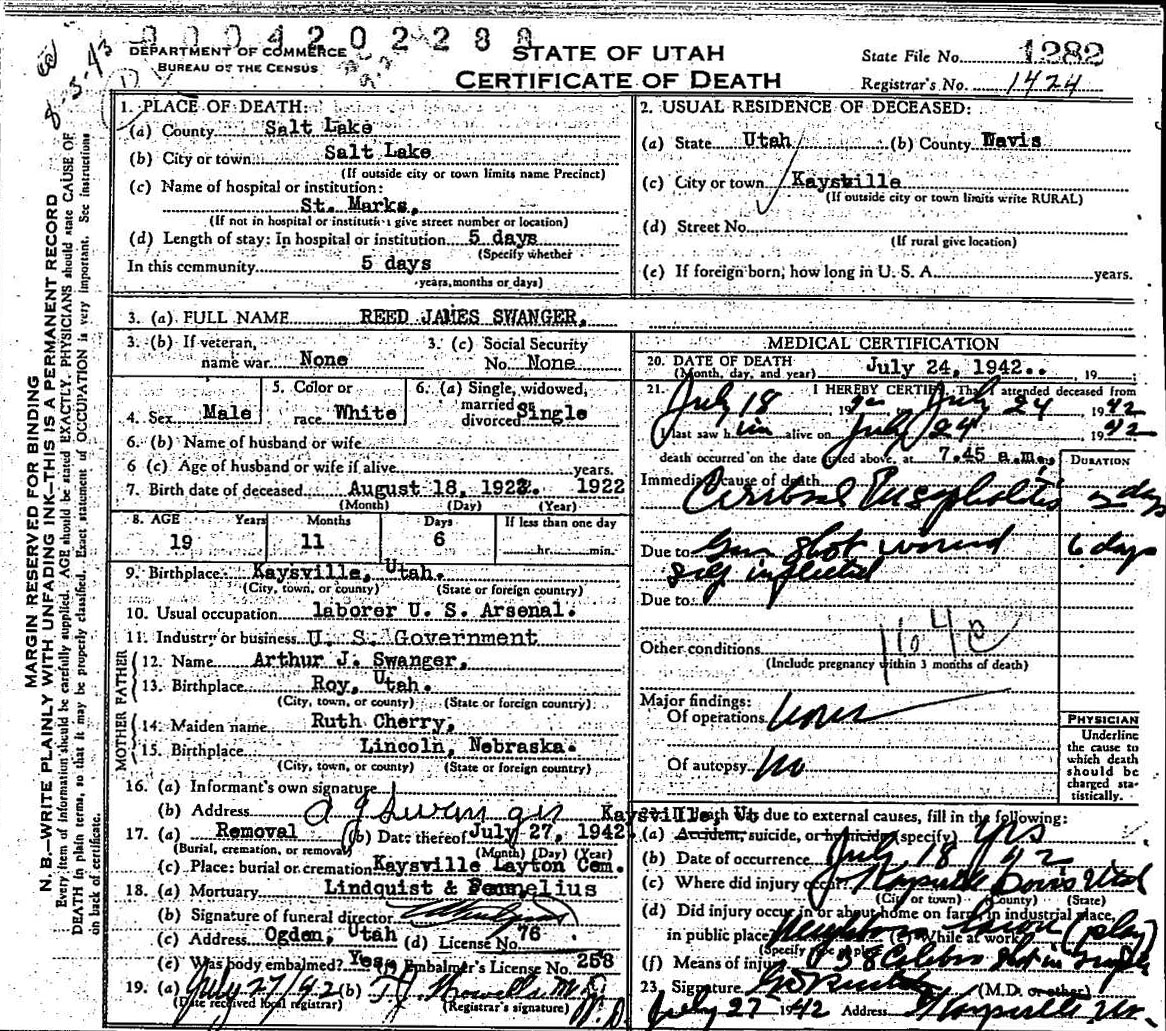 0004202288
DEPARTMENT OF COMMERCE
BUREAU OF THE CENSUS
STATE OF UTAH
CERTIFICATE OF DEATH
State File No. 1282
Registrar's No. 1424
8-5-43
MARGIN RESERVED FOR BINDING
N. B.—WRITE PLAINLY WITH UNFADING INK—THIS IS A PERMANENT RECORD
Every item of information should be carefully supplied. AGE should be stated EXACTLY. PHYSICIANS should state CAUSE OF
DEATH in plain terms, so that it may be properly classified. Exact statement of OCCUPATION is very important. See instructions
on back of certificate.
1. PLACE OF DEATH:
(a) County Salt Lake
(b) City or town Salt Lake
(If outside city or town limits name Precinct)
(c) Name of hospital or institution:
St. Marks,
(If not in hospital or institution give street number or location)
(d) Length of stay: In hospital or institution 5 days
(Specify whether
In this community 5 days
years, months or days)
2. USUAL RESIDENCE OF DECEASED:
(a) State Utah (b) County Davis
(c) City or town Kaysville
(If outside city or town limits write RURAL)
(d) Street No.
(If rural give location)
(e) If foreign born, how long in U. S. A. years.
3. (a) FULL NAME REED JAMES SWANGER,
3. (b) If veteran, name war None
3. (c) Social Security No. None
4. Sex Male
5. Color or race White
6. (a) Single, widowed, married divorced Single
6. (b) Name of husband or wife
6 (c) Age of husband or wife if alive years.
7. Birth date of deceased August 18, 1922. 1922
(Month) (Day) (Year)
8. AGE Years Months Days If less than one day
19 11 6 hr. min.
9. Birthplace Kaysville, Utah.
(City, town, or county) (State or foreign country)
10. Usual occupation laborer U. S. Arsenal.
11. Industry or business U. S. Government
FATHER
12. Name Arthur J. Swanger,
13. Birthplace Roy, Utah.
(City, town, or county) (State or foreign country)
MOTHER
14. Maiden name Ruth Cherry,
15. Birthplace Lincoln, Nebraska.
(City, town, or county) (State or foreign country)
16. (a) Informant's own signature
(b) Address A J Swanger Kaysville, Ut
17. (a) Removal (b) Date thereof July 27, 1942
(Burial, cremation, or removal) (Month) (Day) (Year)
(c) Place: burial or cremation Kaysville Layton Cem.
18. (a) Mortuary Lindquist &
(b) Signature of funeral director
(c) Address Ogden, Utah (d) License No. 76
(e) Was body embalmed? Yes. (f) Embalmer's License No. 258
19. (a) July 27/42 (b) T J Howells M.D.
(Date received local registrar) (Registrar's signature)
MEDICAL CERTIFICATION
20. DATE OF DEATH July 24, 1942. 19
(Month, day, and year)
21. I HEREBY CERTIFY, That I attended deceased from
July 18 1942 July 24 1942
I last saw him alive on July 24 1942
death occurred on the date stated above, at 7.45 a.m.
DURATION
Immediate cause of death
Cerebral Encephalitis 2 days
Due to Gun shot wound 6 days
self inflicted
Due to
Other conditions
(Include pregnancy within 3 months of death)
Major findings:
Of operations none
Of autopsy no
PHYSICIAN
Underline
the cause to
which death
should be
charged statistically.
22. If death was due to external causes, fill in the following:
(a) Accident, suicide, or homicide (specify) yes
(b) Date of occurrence July 18 42
(c) Where did injury occur? Kaysville Davis Utah
(City or town) (County) (State)
(d) Did injury occur in or about home on farm, in industrial place,
in public place? Neighbors
(Specify type of place) (e) While at work
(f) Means of injury 38 shot in
23. Signature (M.D. or other)
July 27 1942 Address Kaysville Ut.